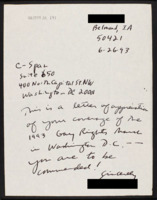 Belmond, IA
50421
6-26-93
C-Span
Suite 650
400 North Capital St. NW
Washington, DC 20001
This is a letter of appreciation
of your coverage of the
1993 Gay Rights March
in Washington D.C. —
you are to be
commended!
Sincerely